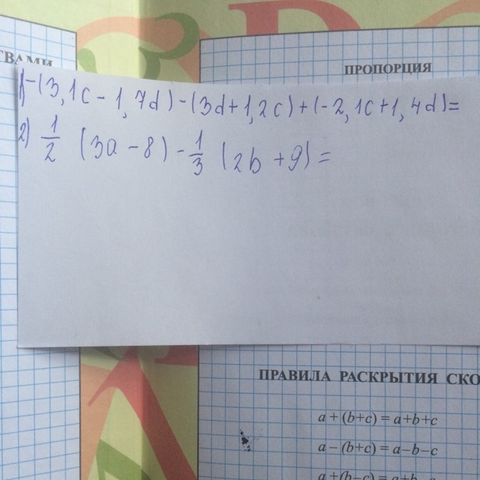 ПРОПОРЦИЯ
1) -(3,1c - 1,7d) - (3d + 1,2c) + (-2,1c + 1,4d) =
2) 1/2 (3a - 8) - 1/3 (2b + 9) =
ПРАВИЛА РАСКРЫТИЯ
a + (b+c) = a+b+c
a – (b+c) = a–b–c